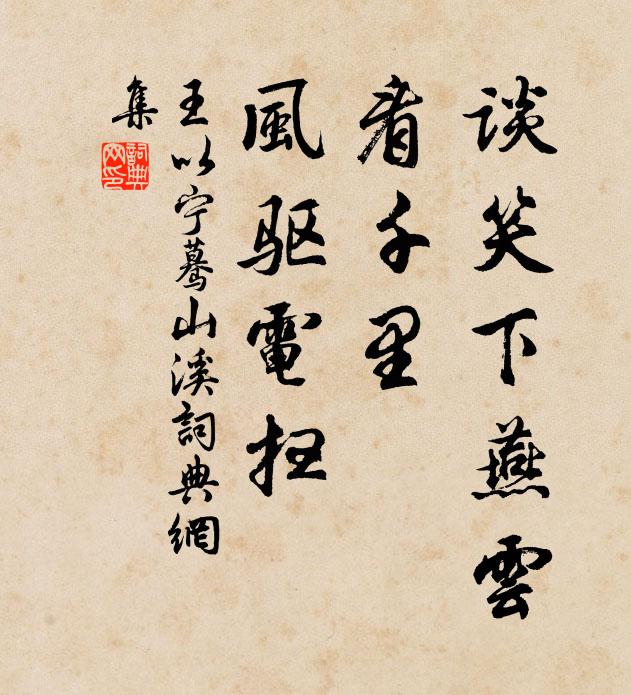 谈笑下燕雲
看千里
風驱電扫
王以宁驀山溪詞典網
集
詞典
网印